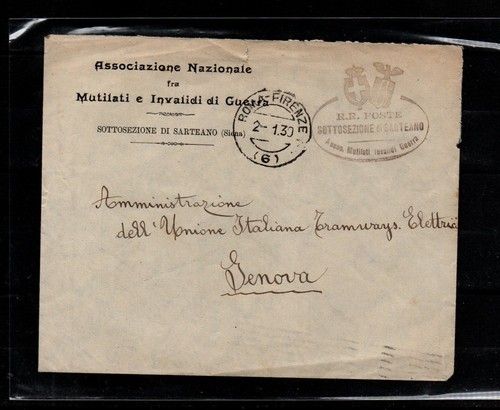 Associazione Nazionale
fra
Mutilati e Invalidi di Guerra
SOTTOSEZIONE DI SARTEANO (Siena)
ROMA-FIRENZE
2-1.30
(6)
R.R. POSTE
SOTTOSEZIONE DI SARTEANO
Assoc. Mutilati Invalidi Guerra
Amministrazione
dell'Unione Italiana Tramways. Elettrici
Genova